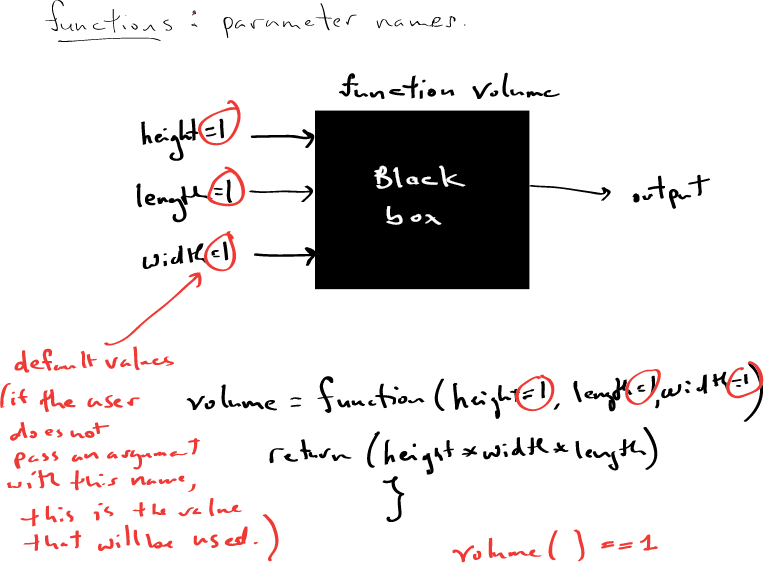 functions : parameter names.
function volume
height=1
length=1
width=1
Black
box
output
default values
(if the user
does not
pass an argument
with this name,
this is the value
that will be used.)
volume = function (height=1, length=1, width=1)
return (height * width * length)
}
volume ( ) == 1